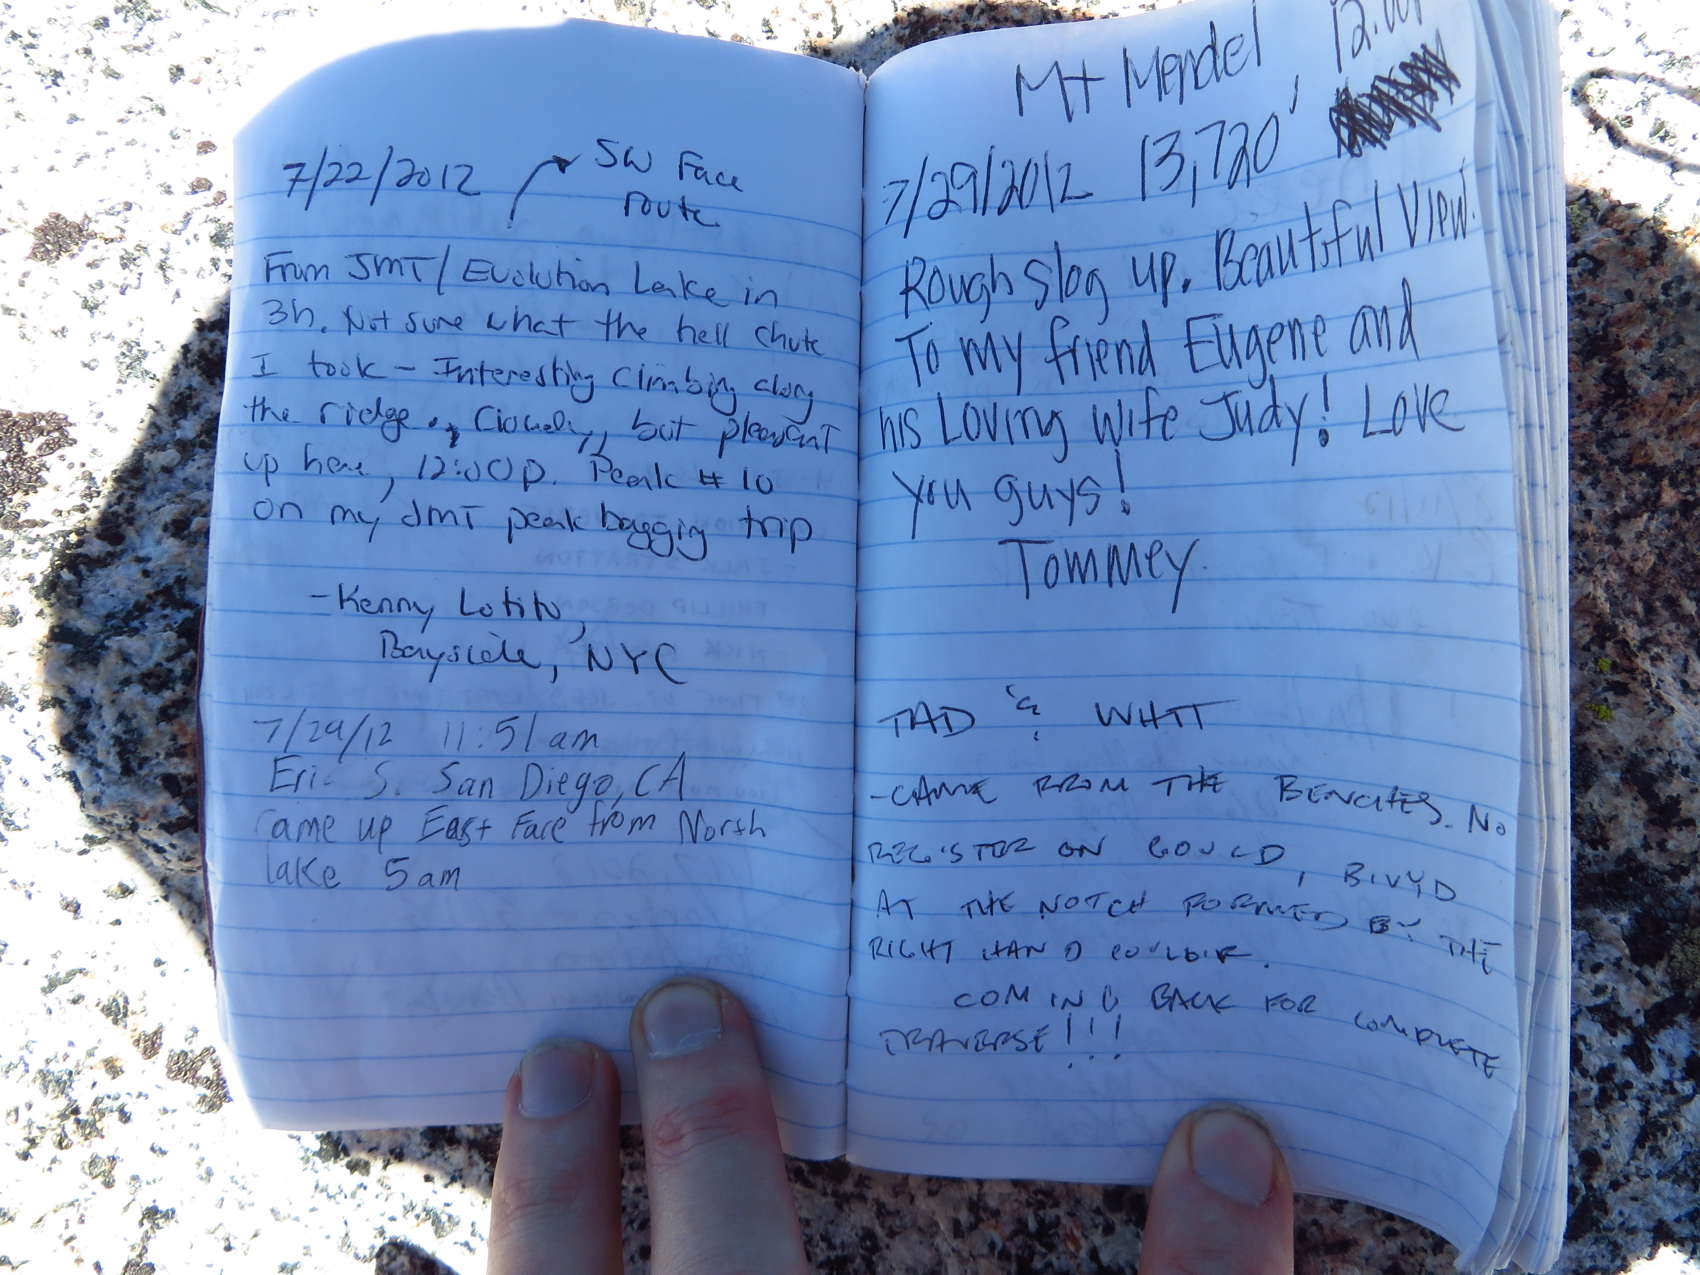 7/22/2012
SW Face
route
From JMT/Evolution Lake in
3h. Not sure what the hell chute
I took - Interesting climbing along
the ridge. Cloudy, but pleasant
up here, 12:00p. Peak #10
on my JMT peak bagging trip
- Kenny Lotito,
Bayside, NYC
7/29/12 11:51 am
Eric S. San Diego, CA
Came up East Face from North
lake 5am
Mt Mendel,
7/29/2012 13,720'
Rough slog up. Beautiful View.
To my friend Eugene and
his Loving wife Judy! Love
you guys!
Tommey
TAD & WHIT
- CAME FROM THE BENCHES. NO
REGISTER ON GOULD, BIVYD
AT THE NOTCH FORMED BY THE
RIGHT HAND COULOIR.
COMING BACK FOR COMPLETE
TRAVERSE!!!